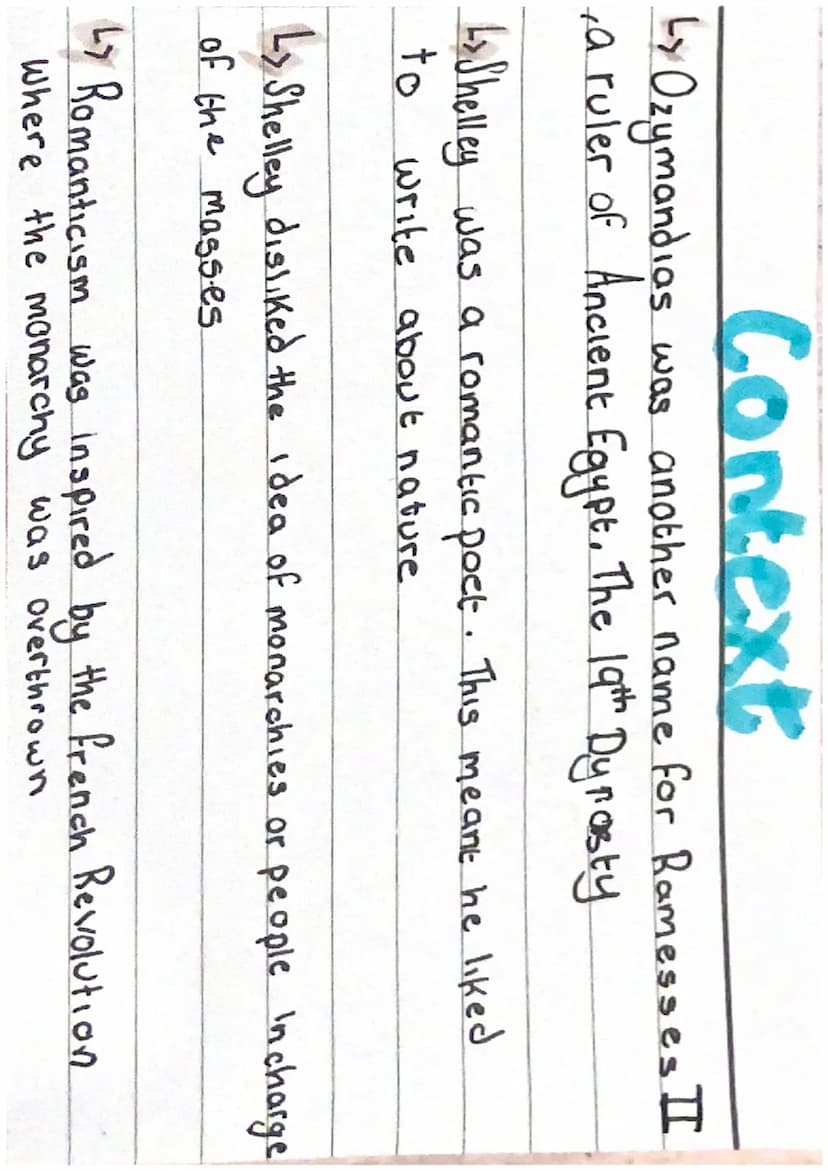 Context
↳ Ozymandias was another name for Ramesses II
, a ruler of Ancient Egypt. The 19th Dynasty
↳ Shelley was a romantic poet. This meant he liked
to write about nature
↳ Shelley disliked the idea of monarchies or people incharge
of the masses
↳ Romanticism was inspired by the french Revolution
where the monarchy was overthrown